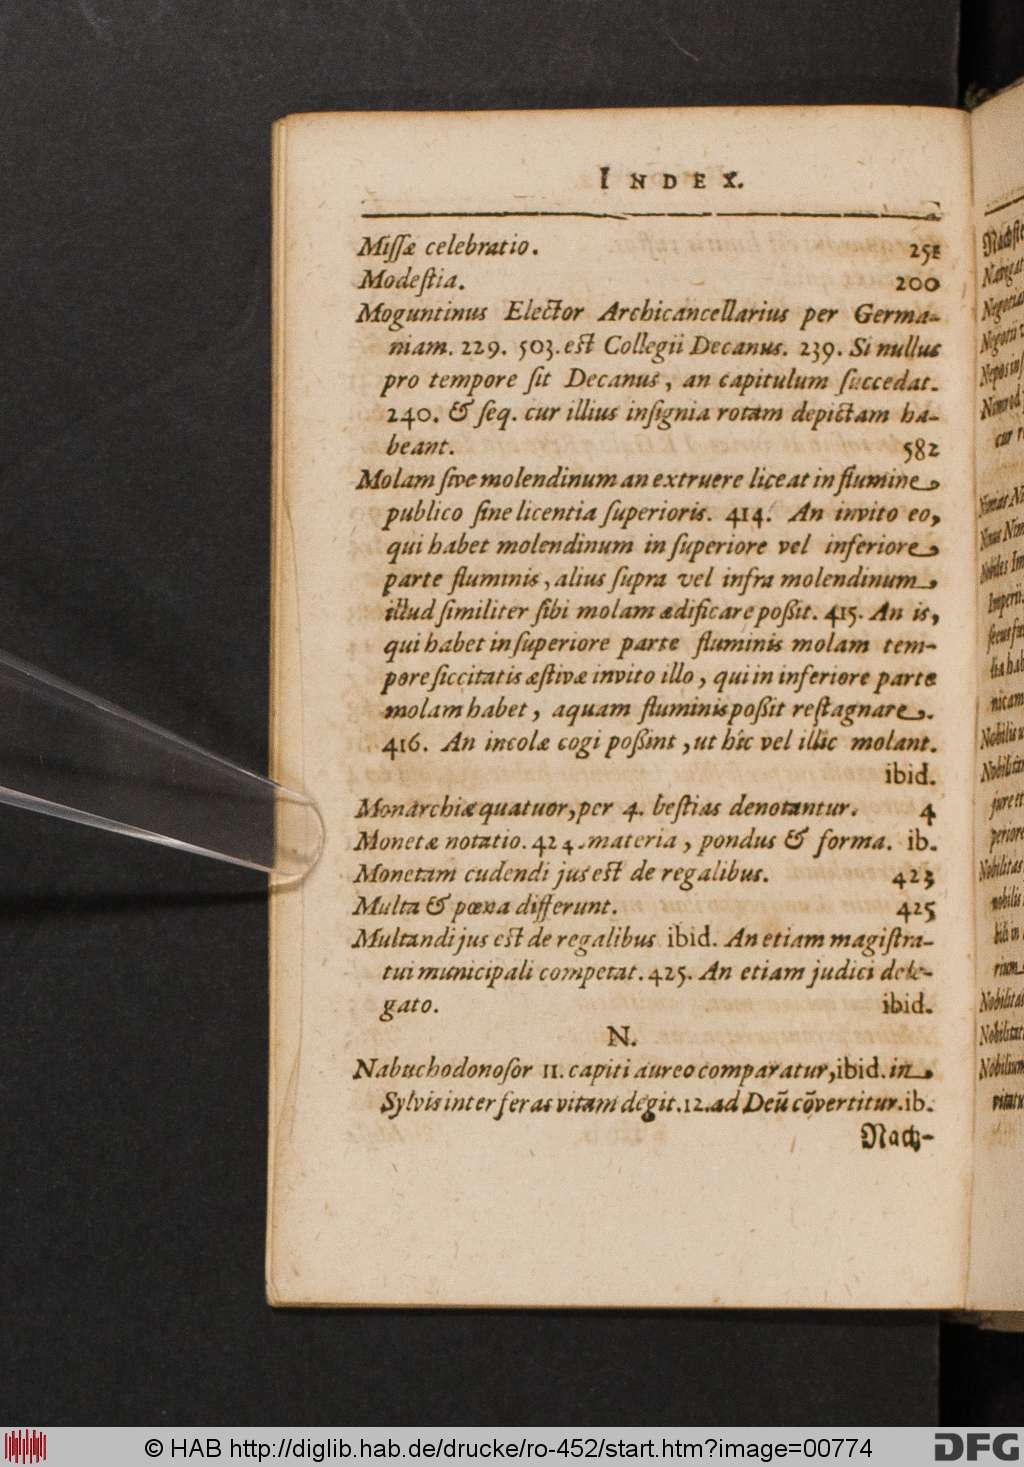 INDEX.
Missæ celebratio. 251
Modestia. 200
Moguntinus Elector Archicancellarius per Germa-
niam. 229. 503. est Collegii Decanus. 239. Si nullus
pro tempore sit Decanus, an capitulum succedat.
240. & seq. cur illius insignia rotam depictam ha-
beant. 582
Molam sive molendinum an extruere liceat in flumine
publico sine licentia superioris. 414. An invito eo,
qui habet molendinum in superiore vel inferiore
parte fluminis, alius supra vel infra molendinum
illud similiter sibi molam ædificare poßit. 415. An is,
qui habet in superiore parte fluminis molam tem-
pore siccitatis æstivæ invito illo, qui in inferiore parte
molam habet, aquam fluminis poßit restagnare.
416. An incolæ cogi poßint, ut hîc vel illîc molant.
ibid.
Monarchiæ quatuor, per 4. bestias denotantur. 4
Monetæ notatio. 424. materia, pondus & forma. ib.
Monetam cudendi jus est de regalibus. 423
Multa & pœna differunt. 425
Multandi jus est de regalibus ibid. An etiam magistra-
tui municipali competat. 425. An etiam judici dele-
gato. ibid.
N.
Nabuchodonosor 11. capiti aureo comparatur, ibid. in
Sylvis inter feras vitam degit. 12. ad Deũ cõvertitur. ib.
Nach-
Nachste
Navigat
Negotia
Negotii
Nepos
Nimrod
cur
Ninus Nim
Nobiles Im
Imperii
secus
nicam
Nobilis
jure et
periore
Nobilitas
nobilis
Nobilitas
Nobilitat
Nobilium
© HAB http://diglib.hab.de/drucke/ro-452/start.htm?image=00774
DFG